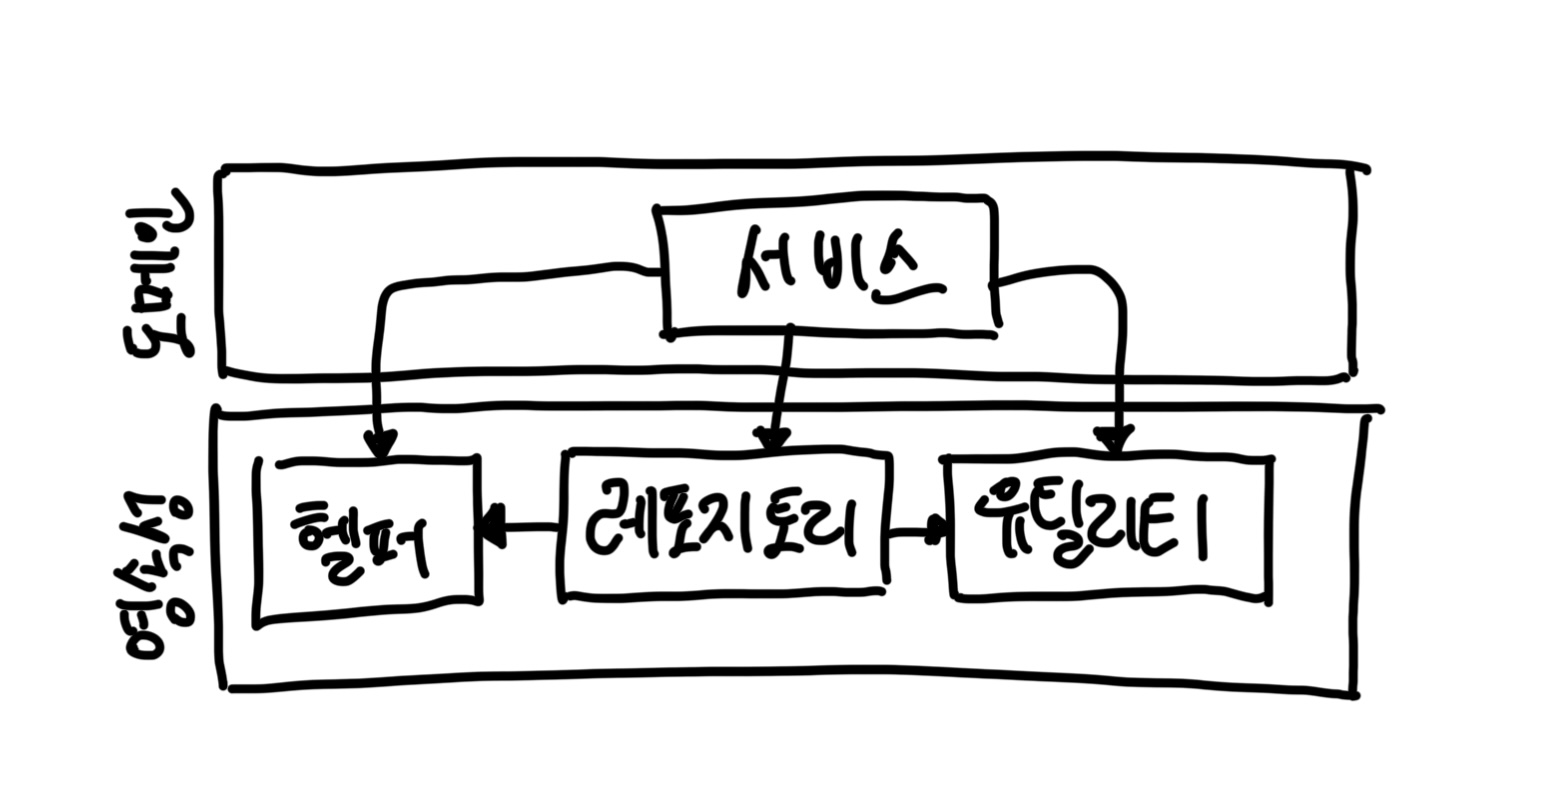 도메인
서비스
영속성
헬퍼
레포지토리
유틸리티